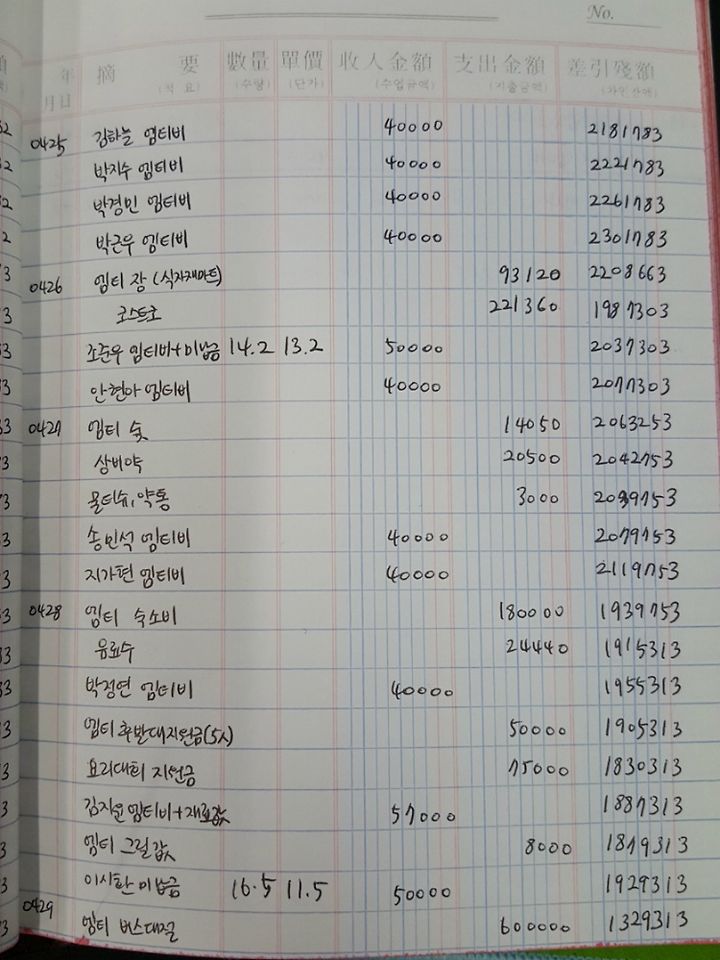 No.
年 摘 要 數量 單價 收入金額 支出金額 差引殘額
月日 (적 요) (수량) (단가) (수입금액) (지출금액) (차인잔액)
0425 김하늘 엠티비 40000 2181783
박지수 엠티비 40000 2221783
박경민 엠티비 40000 2261783
박근우 엠티비 40000 2301783
0426 엠티 장 (식자재마트) 93120 2208663
코스트코 221360 1987303
조준우 엠티비+미납금 14.2 13.2 50000 2037303
안현아 엠티비 40000 2077303
0427 엠티 숯 14050 2063253
상비약 20500 2042753
물티슈, 약통 3000 2039753
송민석 엠티비 40000 2079753
지가현 엠티비 40000 2119753
0428 엠티 숙소비 180000 1939753
음료수 24440 1915313
박정연 엠티비 40000 1955313
엠티 후발대지원금(5시) 50000 1905313
요리대회 지원금 75000 1830313
김지윤 엠티비+재료값 57000 1887313
엠티 그릴값 8000 1879313
이시환 미납금 16.5 11.5 50000 1929313
0429 엠티 버스대절 600000 1329313